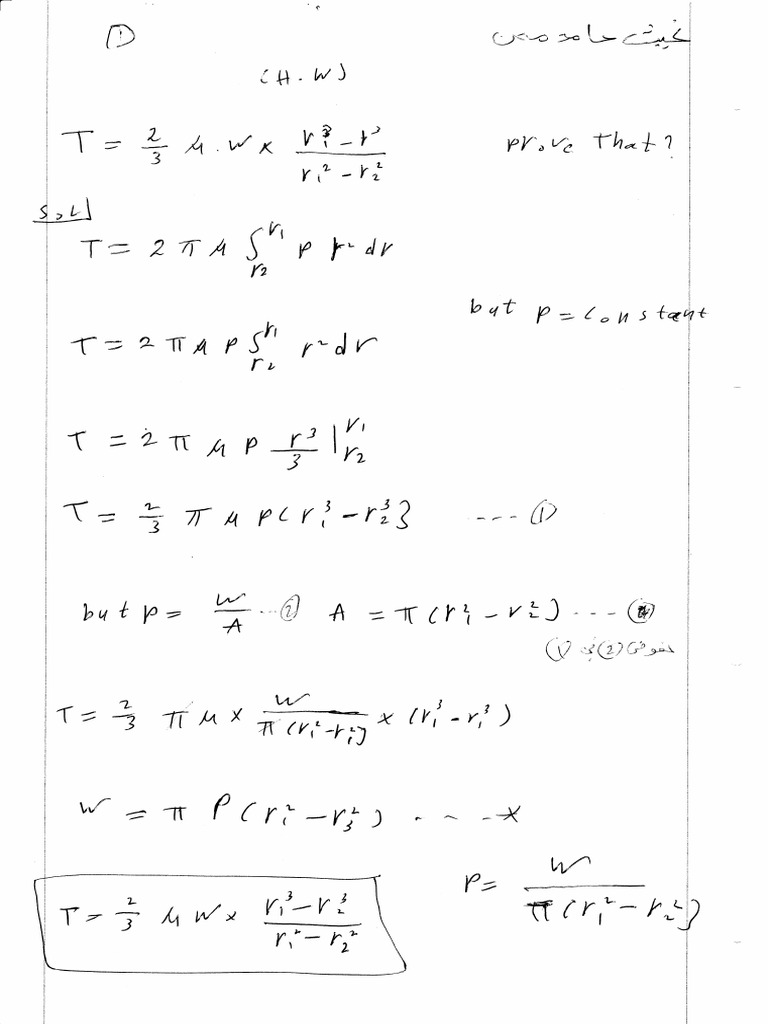 ① غيث حامد معن
(H.W)
T = 2/3 μ.W × (r₁³ − r³)/(r₁² − r₂²) prove that?
Sol
T = 2 π μ ∫_{r₂}^{r₁} P r² dr
but P = constant
T = 2 π μ P ∫_{r₂}^{r₁} r² dr
T = 2 π μ P r³/3 |_{r₂}^{r₁}
T = 2/3 π μ P (r₁³ − r₂³} --- ①
but P = W/A ... ② A = π (r₁² − r₂²) ....
نعوض (2) في (1)
T = 2/3 π μ × W/(π (r₁² − r₁²)) × (r₁³ − r₁³)
W = π P (r₁² − r₃²) - - - -*
P = W/(π (r₁² − r₂²})
T = 2/3 μ W × (r₁³ − r₂³)/(r₁² − r₂²)